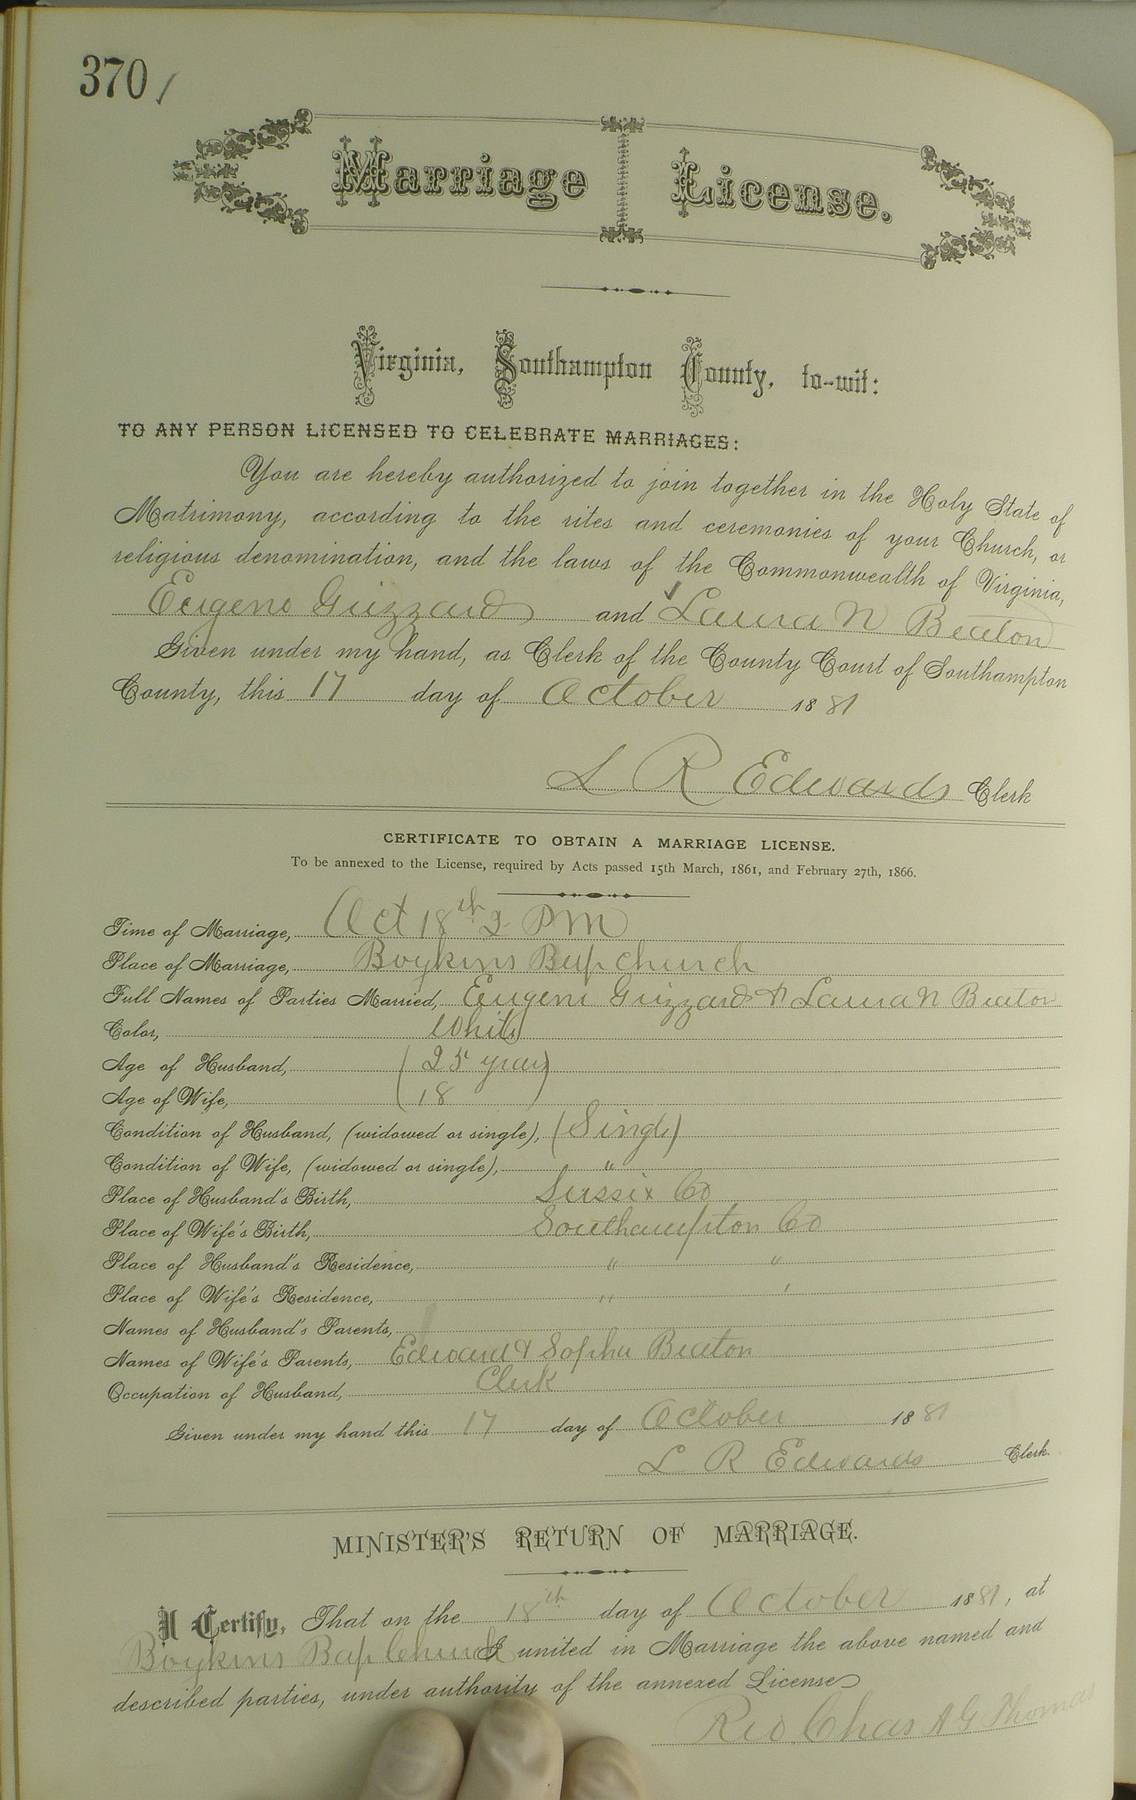 370
Marriage License.
Virginia, Southampton County, to-wit:
TO ANY PERSON LICENSED TO CELEBRATE MARRIAGES:
You are hereby authorized to join together in the Holy State of
Matrimony, according to the rites and ceremonies of your Church, or
religious denomination, and the laws of the Commonwealth of Virginia,
Eugene Grizzard and Laura N Beaton
Given under my hand, as Clerk of the County Court of Southampton
County, this 17 day of October 1881
L R Edwards Clerk
CERTIFICATE TO OBTAIN A MARRIAGE LICENSE.
To be annexed to the License, required by Acts passed 15th March, 1861, and February 27th, 1866.
Time of Marriage, Oct 18th 2 PM
Place of Marriage, Boykins Bap Church
Full Names of Parties Married, Eugene Grizzard & Laura N Beaton
Color, White
Age of Husband, (25 years)
Age of Wife, (18 )
Condition of Husband, (widowed or single), (Single)
Condition of Wife, (widowed or single), "
Place of Husband's Birth, Sussex Co
Place of Wife's Birth, Southampton Co
Place of Husband's Residence, " "
Place of Wife's Residence, " "
Names of Husband's Parents,
Names of Wife's Parents, Edward & Sophia Beaton
Occupation of Husband, Clerk
Given under my hand this 17 day of October 1881
L R Edwards Clerk.
MINISTER'S RETURN OF MARRIAGE.
I Certify, That on the 18th day of October 1881, at
Boykins Bap Church I united in Marriage the above named and
described parties, under authority of the annexed License
Rev. Chas A G Thomas